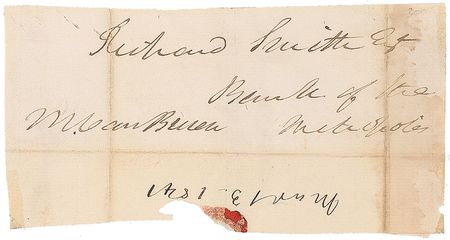 Richard Smith Esq
Bank of the
M. Van Buren Metropolis
1841